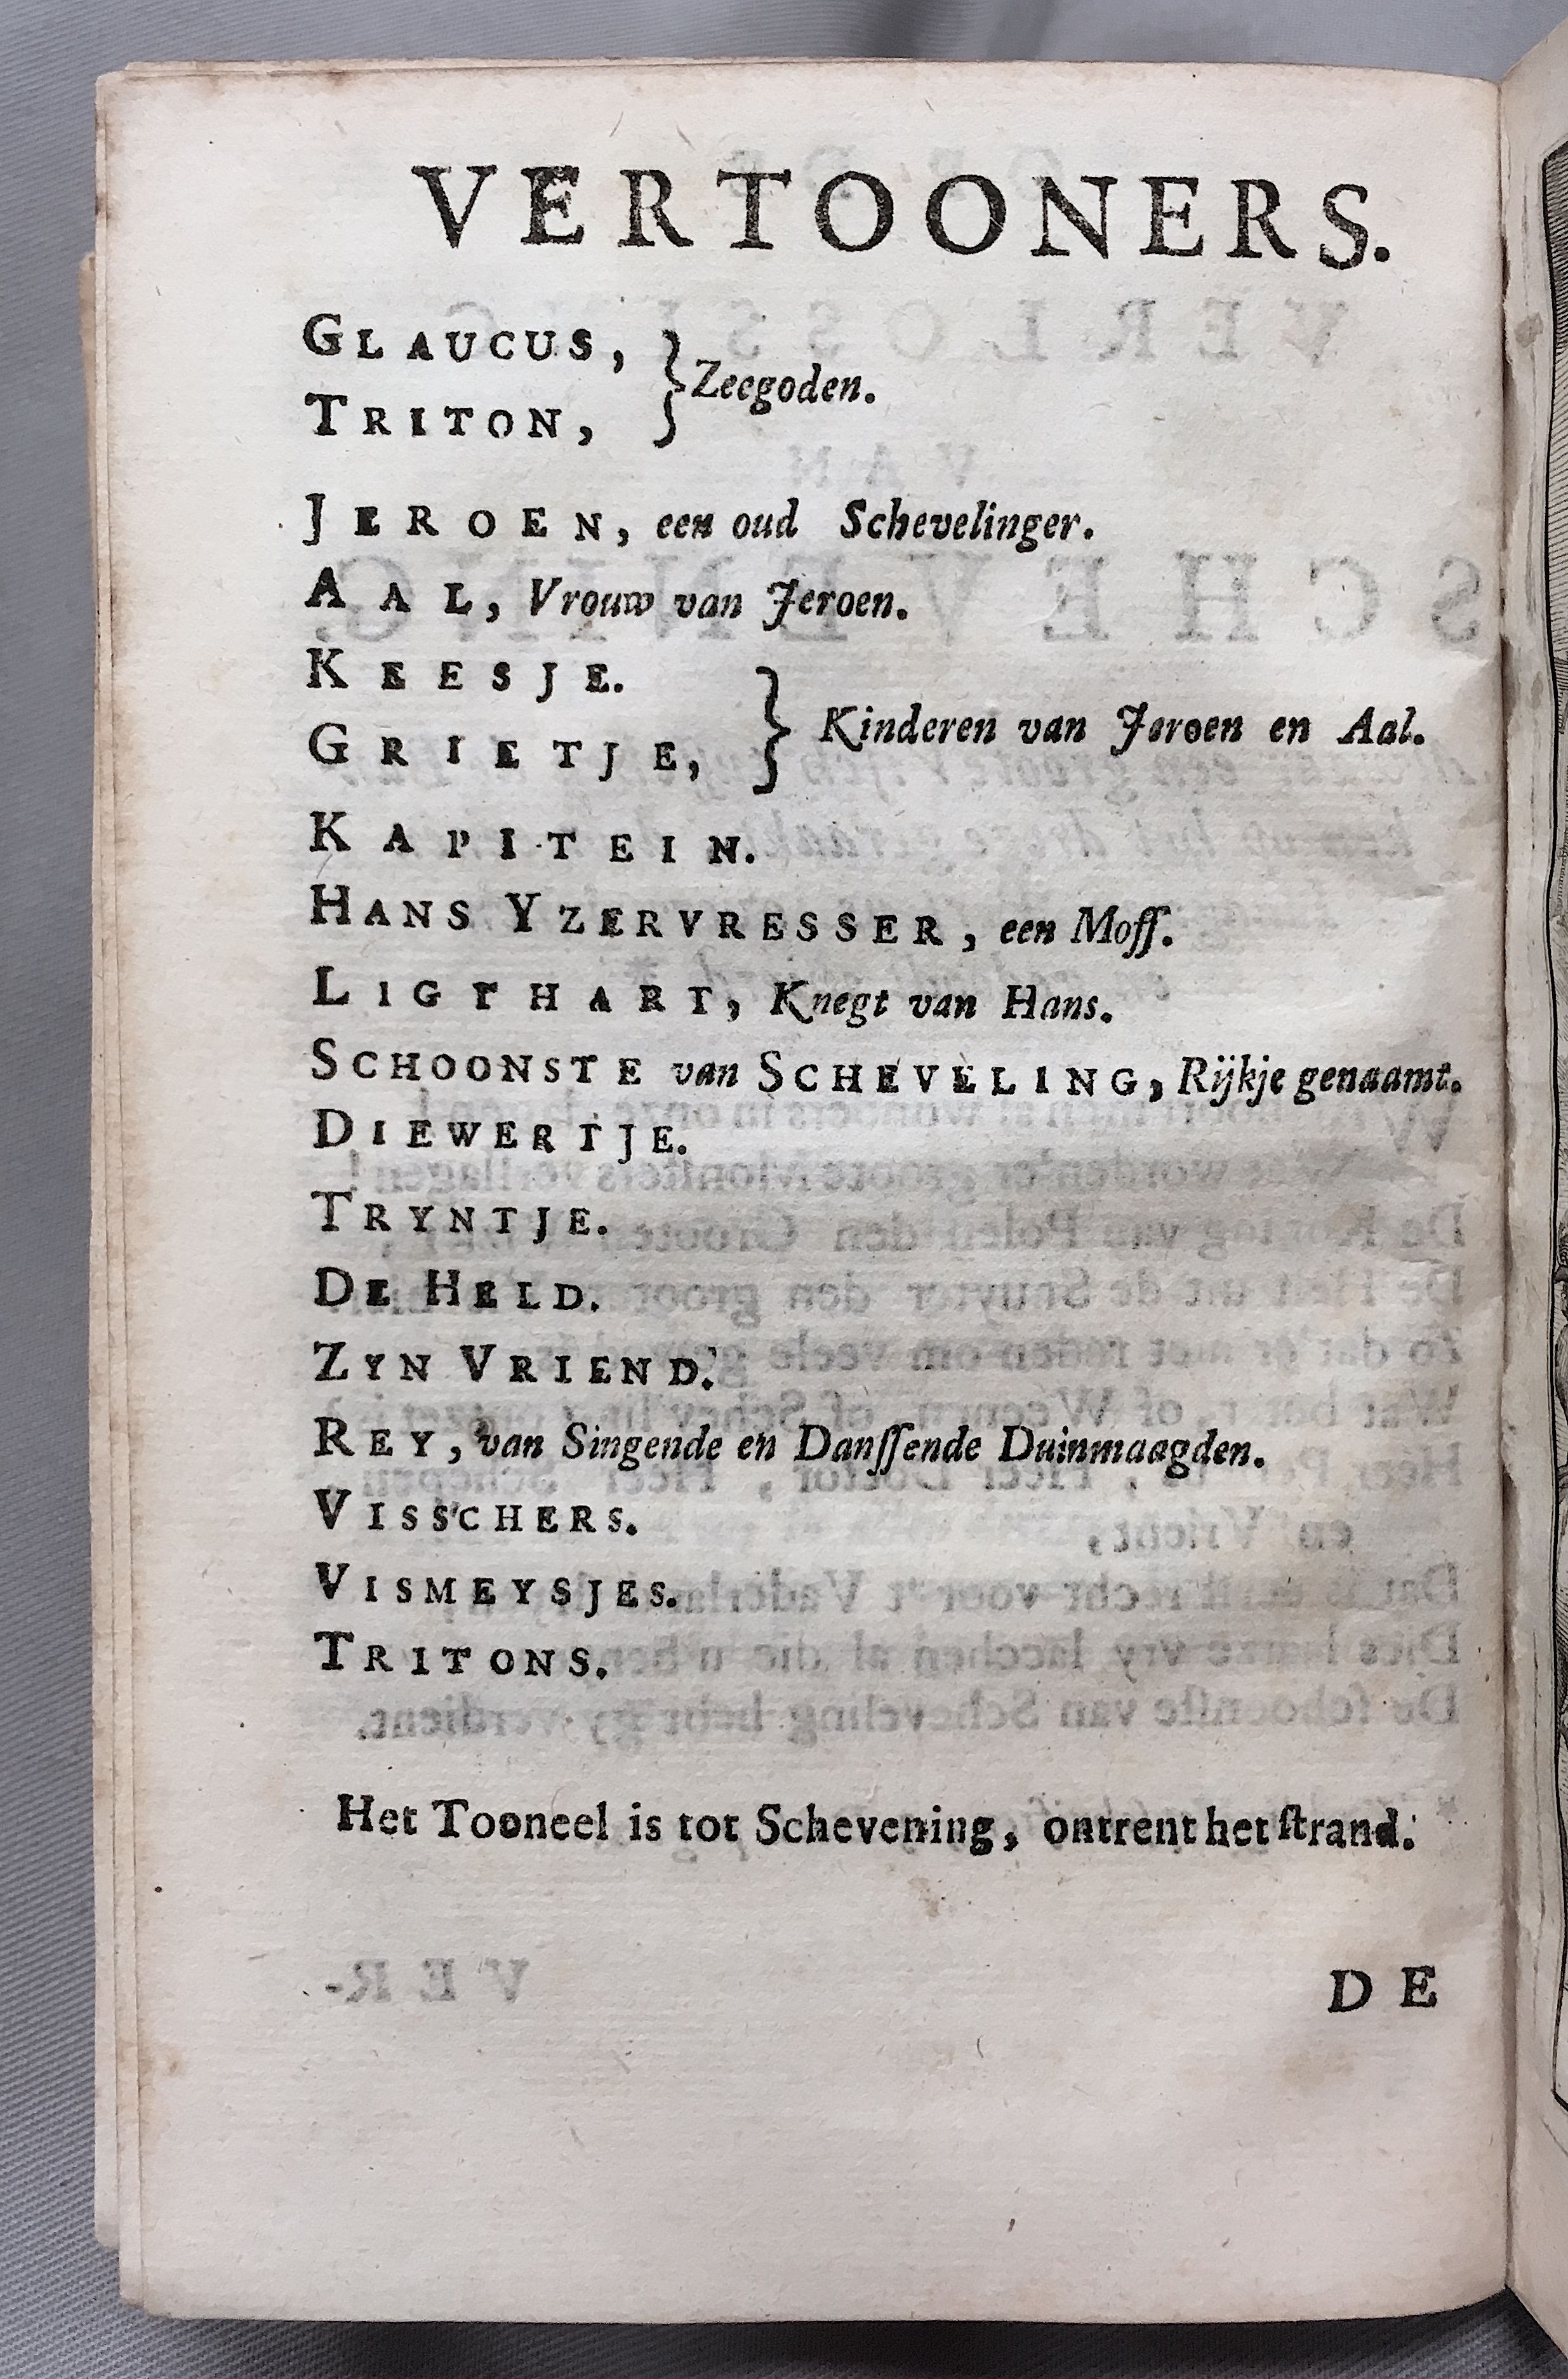 VERTOONERS.
GLAUCUS,
TRITON,
} Zeegoden.
JEROEN, een oud Schevelinger.
AAL, Vrouw van Jeroen.
KEESJE.
GRIETJE,
} Kinderen van Jeroen en Aal.
KAPITEIN.
HANS YZERVRESSER, een Moff.
LIGTHART, Knegt van Hans.
SCHOONSTE van SCHEVELING, Rijkje genaamt.
DIEWERTJE.
TRYNTJE.
DE HELD.
ZYN VRIEND.
REY, van Singende en Danſſende Duinmaagden.
VISSCHERS.
VISMEYSJES.
TRITONS.
Het Tooneel is tot Schevening, ontrent het ſtrand.
DE